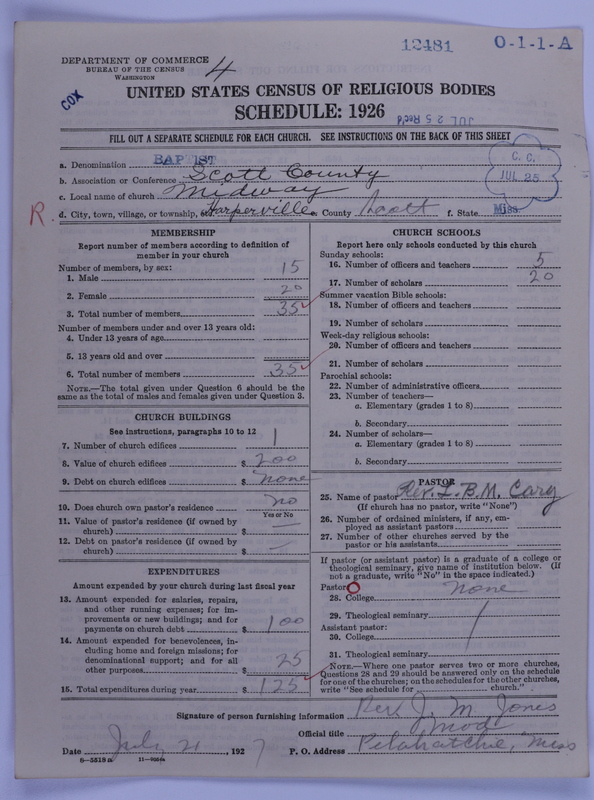 12481 O-1-1-A
DEPARTMENT OF COMMERCE
BUREAU OF THE CENSUS
WASHINGTON
4
COX
UNITED STATES CENSUS OF RELIGIOUS BODIES
SCHEDULE: 1926
JUL 25 Rec'd
FILL OUT A SEPARATE SCHEDULE FOR EACH CHURCH. SEE INSTRUCTIONS ON THE BACK OF THIS SHEET
C. C.
JUL 25
a. Denomination BAPTIST
b. Association or Conference Scott County
c. Local name of church Midway
R.
d. City, town, village, or township, Harperville e. County Scott f. State Miss.
MEMBERSHIP
Report number of members according to definition of
member in your church
Number of members, by sex:
1. Male 15
2. Female 20
3. Total number of members 35
Number of members under and over 13 years old:
4. Under 13 years of age
5. 13 years old and over
6. Total number of members 35
NOTE.—The total given under Question 6 should be the
same as the total of males and females given under Question 3.
CHURCH BUILDINGS
See instructions, paragraphs 10 to 12
7. Number of church edifices 1
8. Value of church edifices $ 200
9. Debt on church edifices $ none
10. Does church own pastor's residence no
Yes or No
11. Value of pastor's residence (if owned by
church) $ —
12. Debt on pastor's residence (if owned by
church) $ —
EXPENDITURES
Amount expended by your church during last fiscal year
13. Amount expended for salaries, repairs,
and other running expenses; for im-
provements or new buildings; and for
payments on church debt $ 100
14. Amount expended for benevolences, in-
cluding home and foreign missions; for
denominational support; and for all
other purposes $ 25
15. Total expenditures during year $ 125
CHURCH SCHOOLS
Report here only schools conducted by this church
Sunday schools:
16. Number of officers and teachers 5
17. Number of scholars 20
Summer vacation Bible schools:
18. Number of officers and teachers
19. Number of scholars
Week-day religious schools:
20. Number of officers and teachers
21. Number of scholars
Parochial schools:
22. Number of administrative officers
23. Number of teachers—
a. Elementary (grades 1 to 8)
b. Secondary
24. Number of scholars—
a. Elementary (grades 1 to 8)
b. Secondary
PASTOR
25. Name of pastor Rev. L. B. M. Cary
(If church has no pastor, write "None")
26. Number of ordained ministers, if any, em-
ployed as assistant pastors
27. Number of other churches served by the
pastor or his assistants
If pastor (or assistant pastor) is a graduate of a college or
theological seminary, give name of institution below. (If
not a graduate, write "No" in the space indicated.)
Pastor:
28. College none
29. Theological seminary
Assistant pastor:
30. College
31. Theological seminary
NOTE.—Where one pastor serves two or more churches,
Questions 28 and 29 should be answered only on the schedule
for one of the churches; on the schedules for the other churches,
write "See schedule for church."
Signature of person furnishing information Rev. J. M. Jones
Official title Mod
Date July 21, 1927 P. O. Address Pelahatchie, Miss